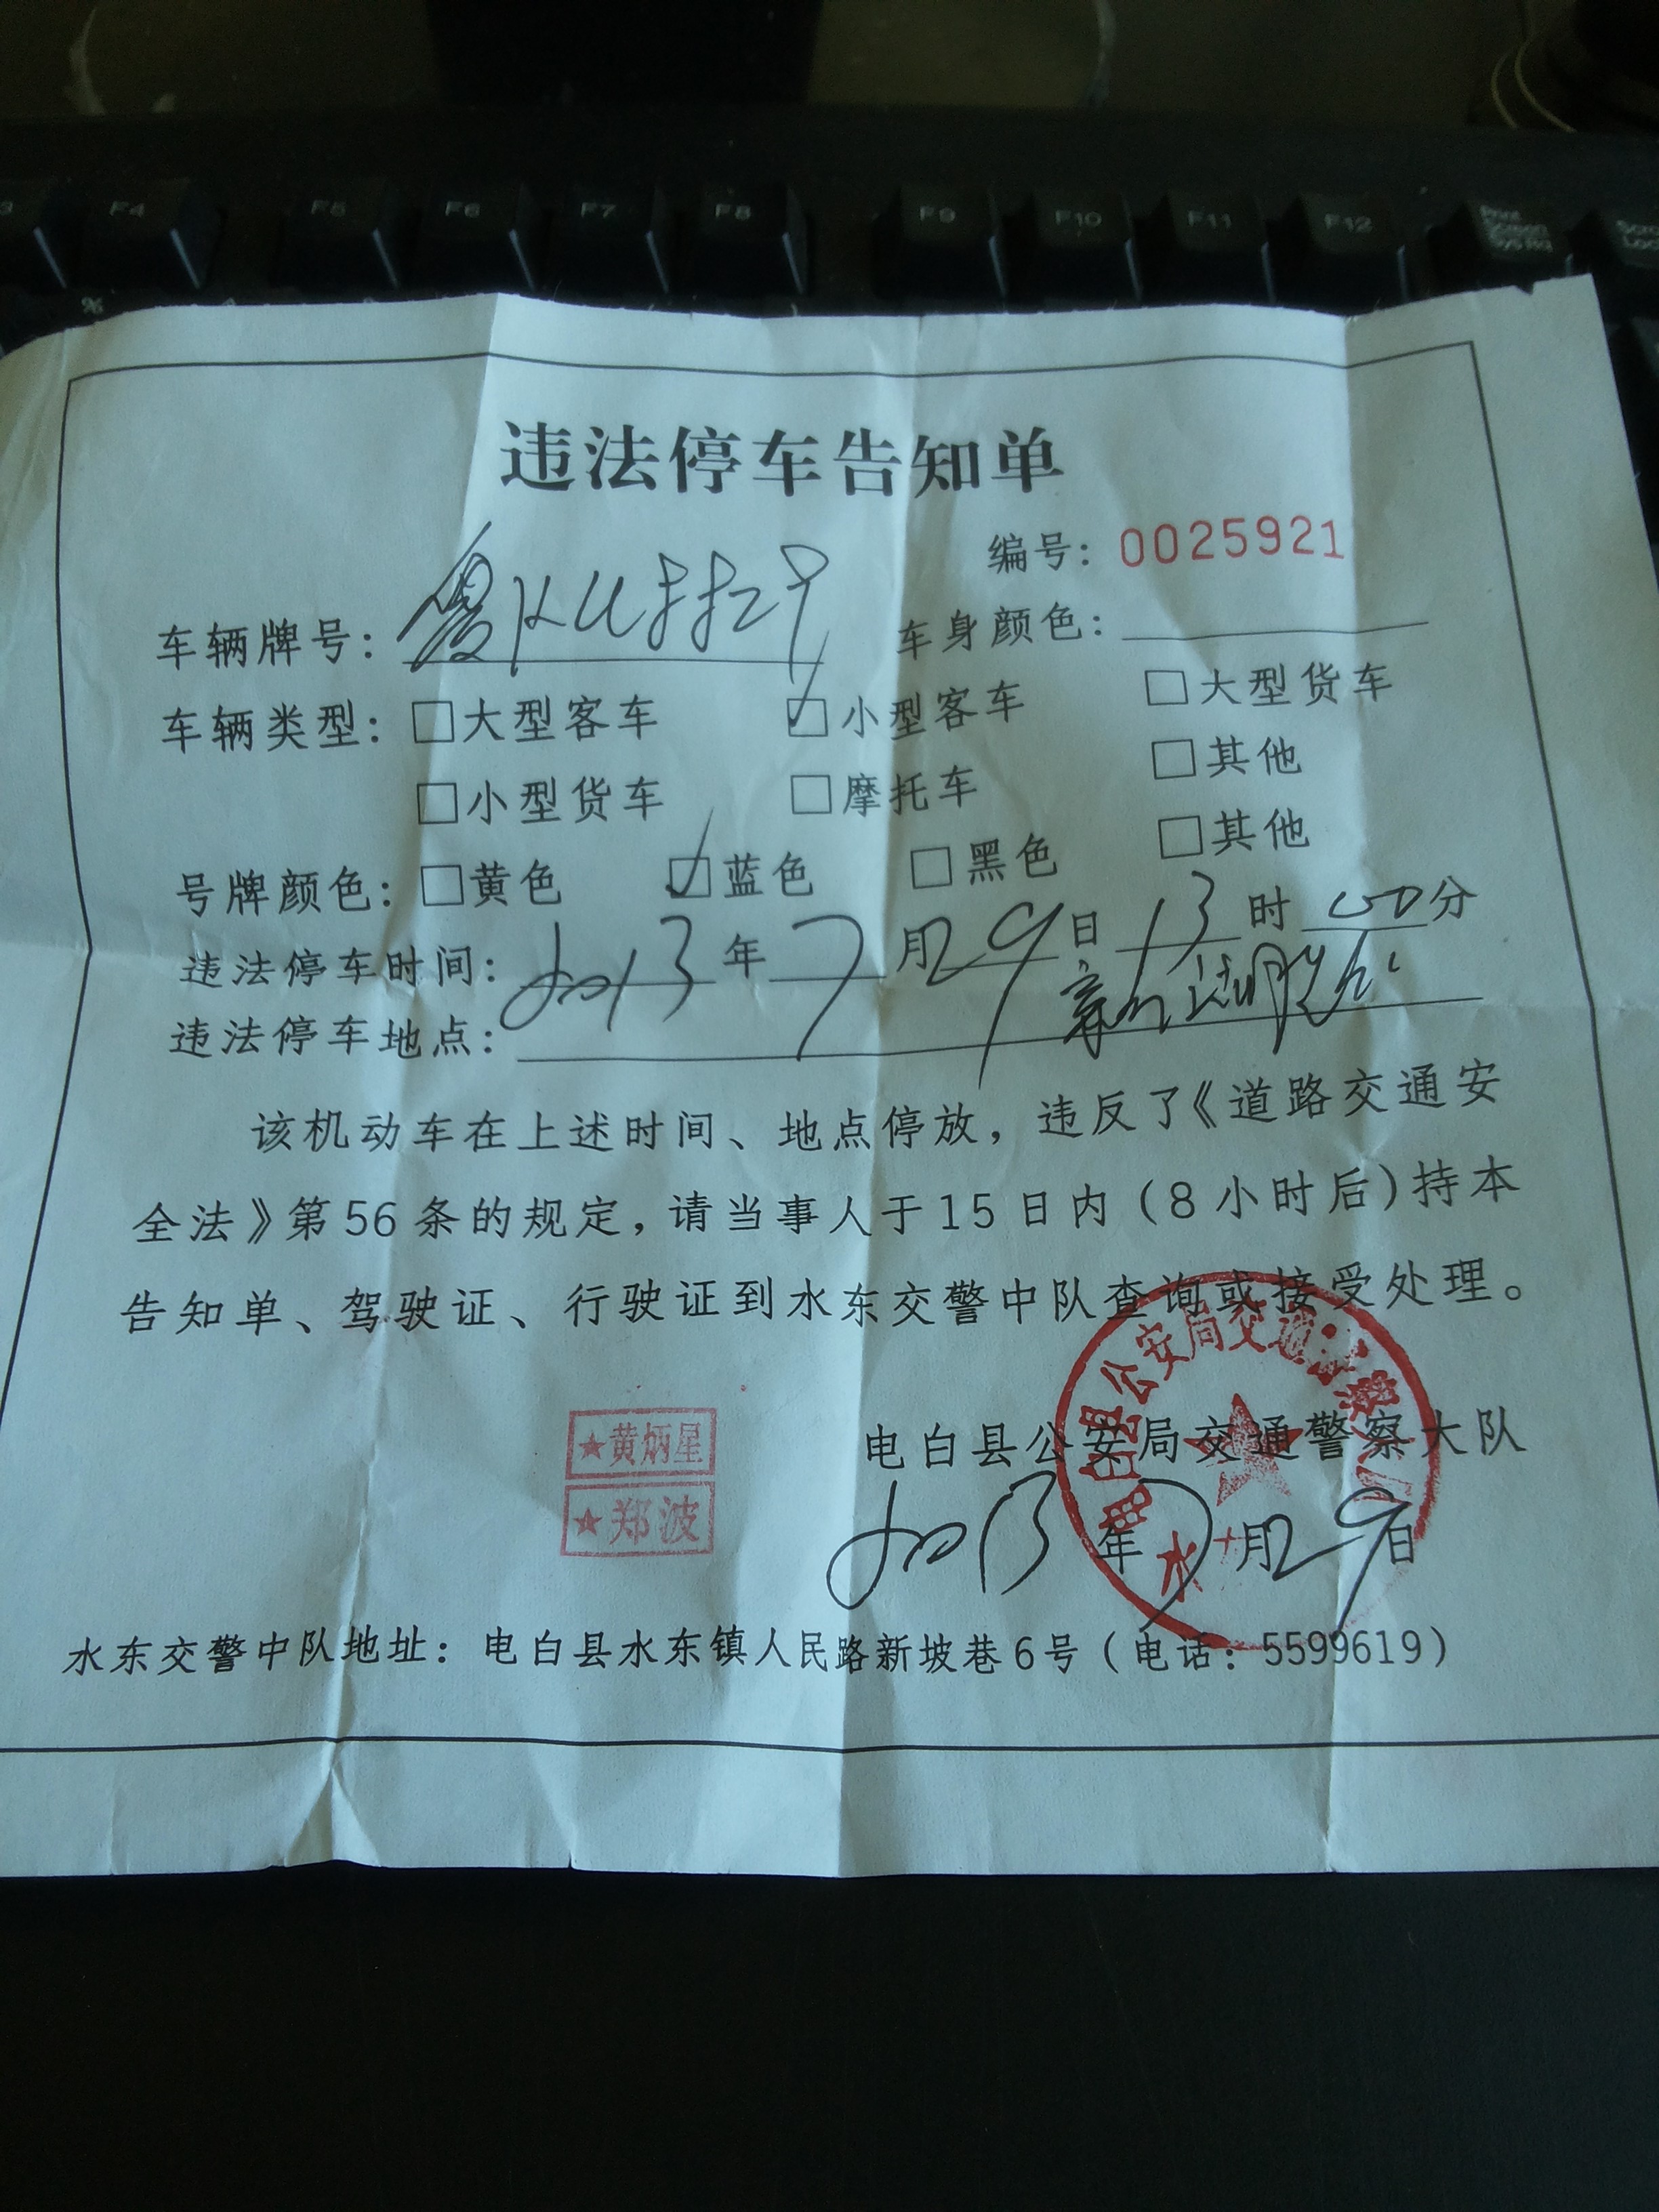 F4 F5 F6 F7 F8 F9 F10 F11 F12 Print Screen SysRq
违法停车告知单
编号：0025921
车辆牌号：粤K 车身颜色：
车辆类型：□大型客车 ☑小型客车 □大型货车
□小型货车 □摩托车 □其他
号牌颜色：□黄色 ☑蓝色 □黑色 □其他
违法停车时间：2013年7月29日13时00分
违法停车地点：
该机动车在上述时间、地点停放，违反了《道路交通安
全法》第56条的规定，请当事人于15日内（8小时后）持本
告知单、驾驶证、行驶证到水东交警中队查询或接受处理。
★黄炳星
★郑波
电白县公安局交通警察大队
2013年7月29日
水东交警中队地址：电白县水东镇人民路新坡巷6号（电话：5599619）